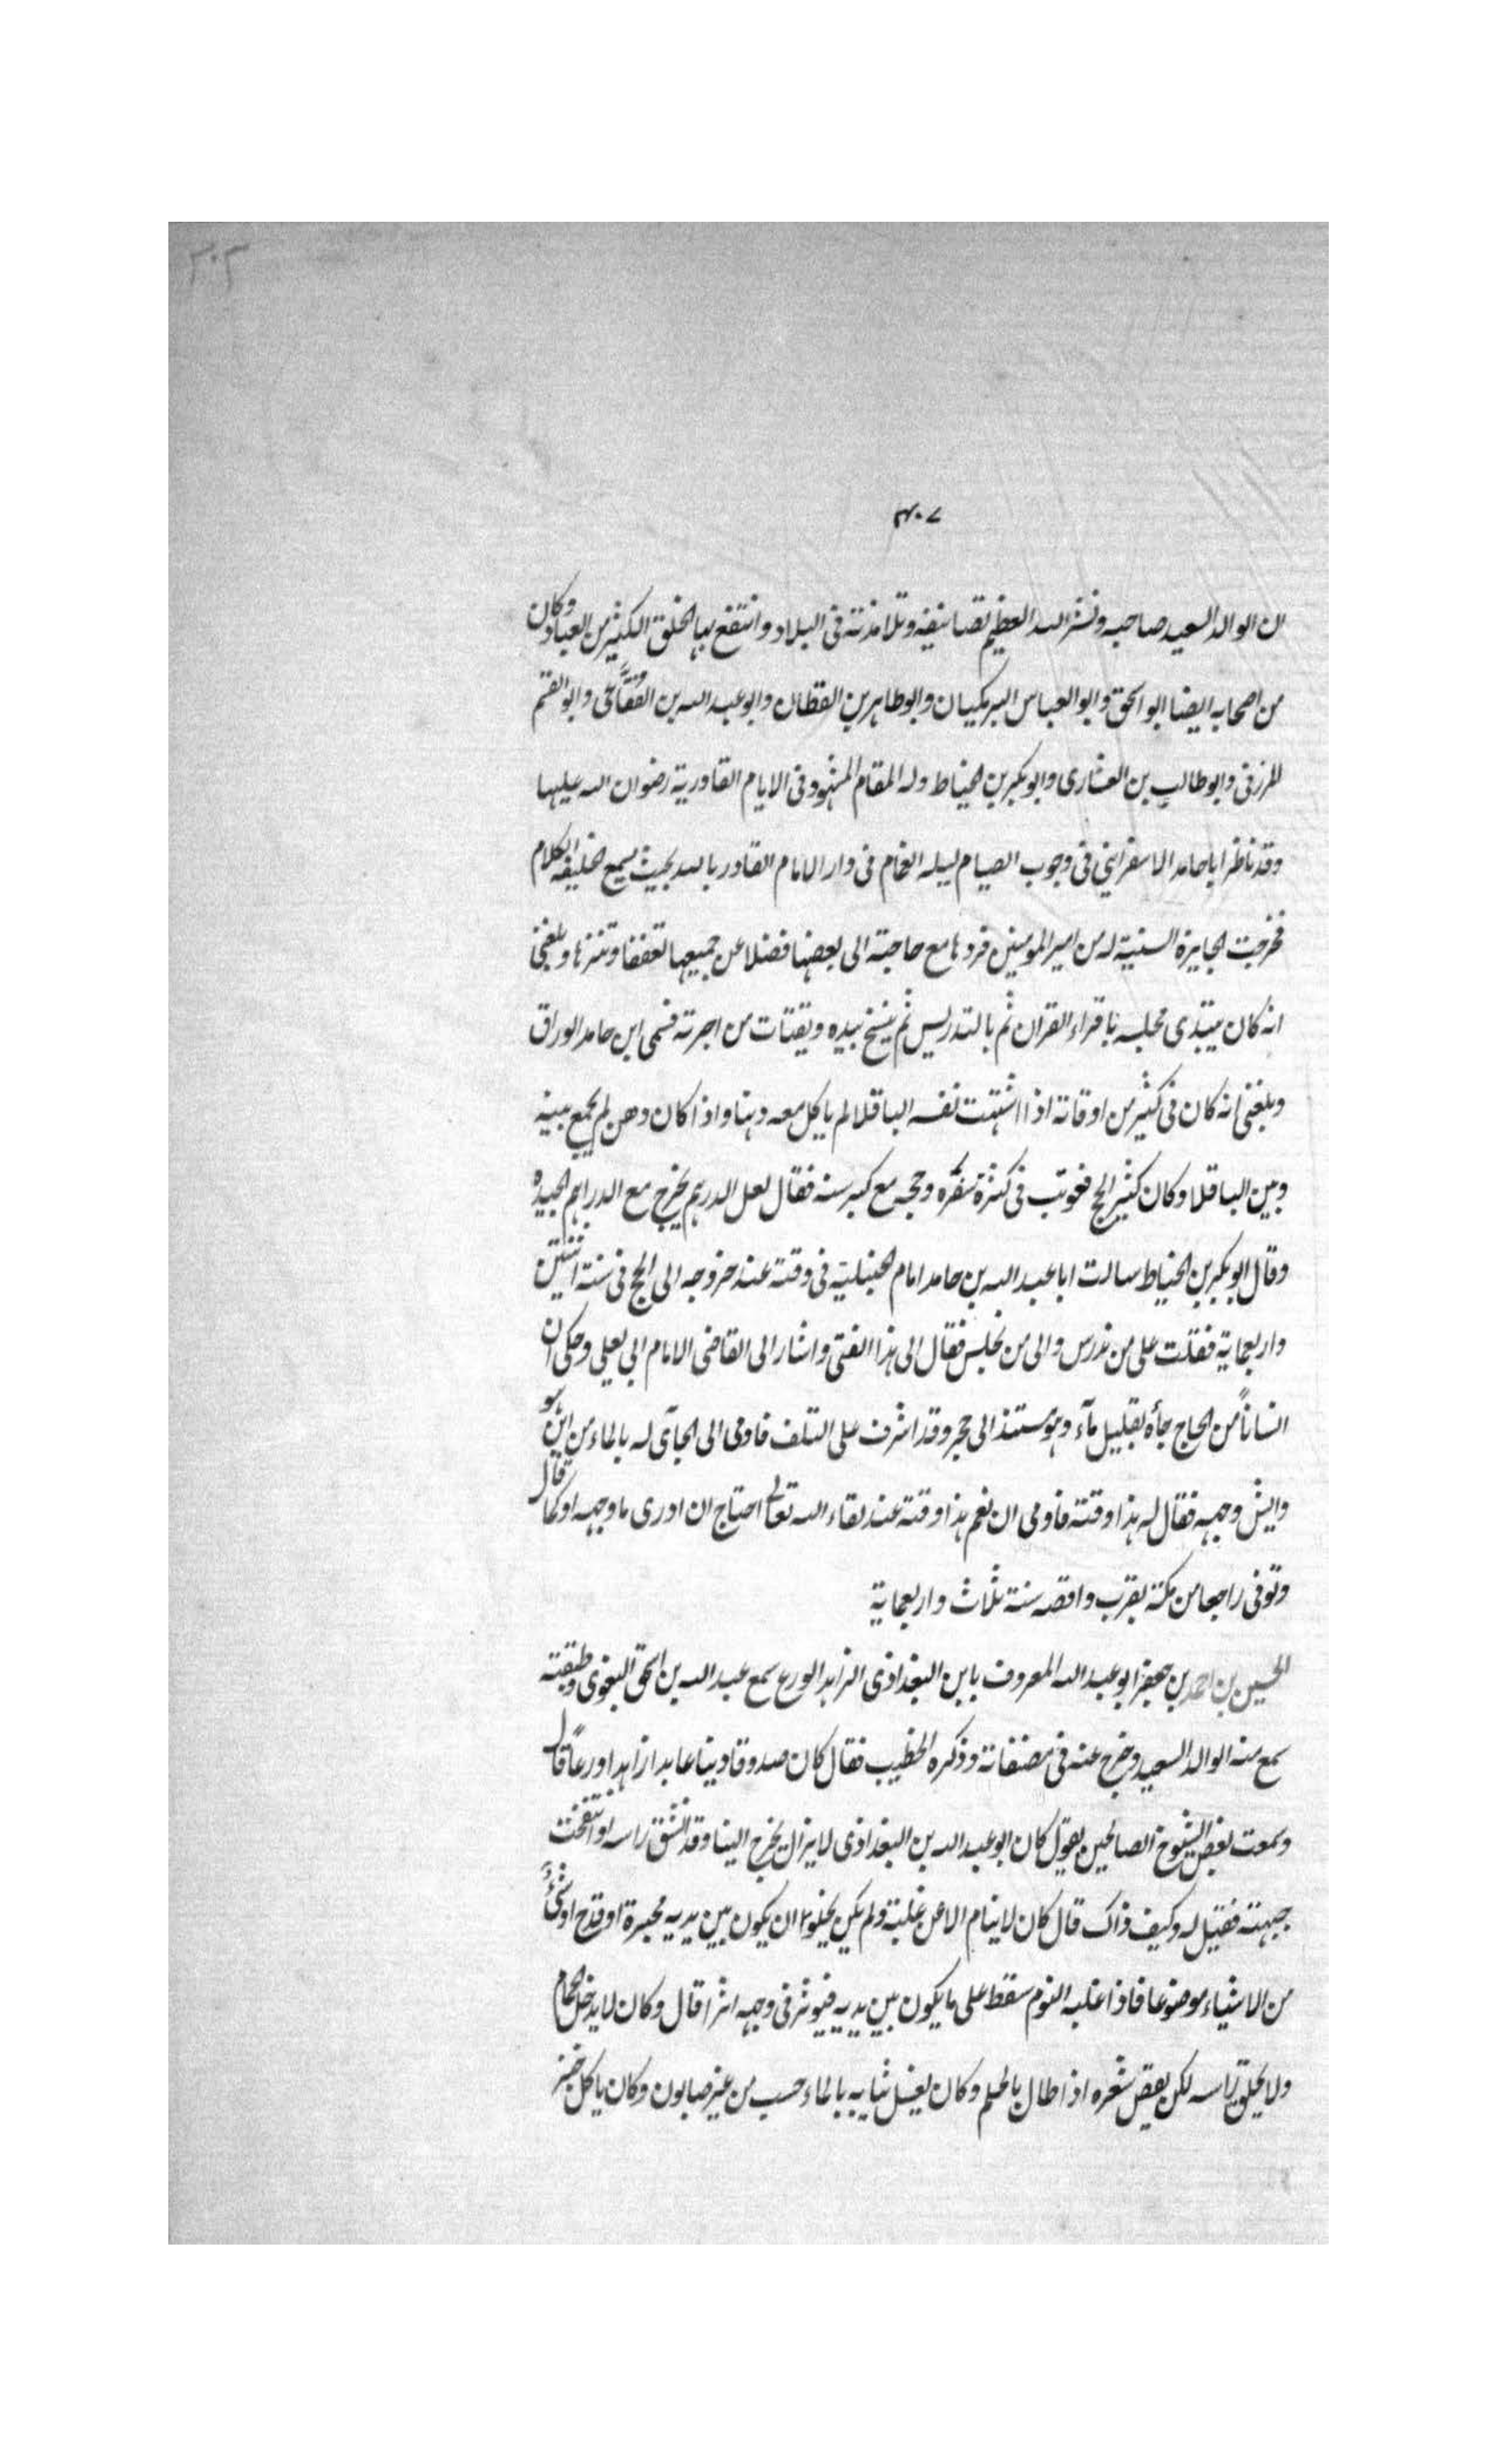 ٣٠٢
٤٠٧
ان الوالد السعيد صاحبه ونشر الله العظيم تصانيفه وتلامذته فى البلاد وانتفع بها الخلق الكثير من العباد وكان
من اصحابه ايضا ابو اسحق وابو العباس البرمكيان وابو طاهر بن القطان وابو عبد الله بن الفقاعى وابو القسم
المزرفى وابو طالب بن العشارى وابو بكر بن الخياط وله المقام المشهود فى الايام القادرية رضوان الله عليها
وقد ناظر ابا حامد الاسفراينى فى وجوب الصيام ليله الغمام فى دار الامام القادر بالله بحيث يسمع الخليفه الكلام
فخرجت الجايزة السنية له من امير المومنين فردها مع حاجته الى بعضها فضلا عن جميعها تعففا وتنزها وبلغنى
انه كان يبتدى مجلسه باقراء القران ثم بالتدريس ثم ينسخ بيده ويقتات من اجرته فسمى ابن حامد الوراق
وبلغنى انه كان فى كثير من اوقاته اذا اشتهت نفسه الباقلا لم ياكل معه دهنا واذا كان دهن لم يجمع بينه
وبين الباقلا وكان كثير الحج فعوتب فى كثرة سفره وحجه مع كبر سنه فقال لعل الدرهم يخرج مع الدراهم الجيده
وقال ابو بكر بن الخياط سالت ابا عبد الله بن حامد امام الحنبلية فى وقته عند خروجه الى الحج فى سنة اثنتين
واربعماية فقلت على من ندرس والى من نجلس فقال الى هذا الفتى واشار الى القاضى الامام ابى يعلى وحكى ان
انسانًا من الحاج جأه بقليل مآء وهو مستند الى حجر وقد اشرف على التلف فاومى الى الجآى له بالماء من اين هو
وايش وجهه فقال له هذا وقته فاومى ان نعم هذا وقته عند لقاء الله تعالى احتاج ان ادرى ما وجهه او كما قال
وتوفى راجعا من مكة بقرب واقصه سنة ثلاث واربعماية
الحسين بن احمد بن جعفر ابو عبد الله المعروف بابن البغداذى الزاهد الورع سمع عبد الله بن اسحق البغوى وطبقته
سمع منه الوالد السعيد وخرج عنه فى مصنفاته وذكره الخطيب فقال كان صدوقا دينا عابدا زاهدا ورعًا قال
وسمعت بعض الشيوخ الصالحين يقول كان ابو عبد الله بن البغداذى لا يزال يخرج الينا وقد انشق راسه او انتفخت
جبهته فقيل له وكيف ذاك قال كان لا ينام الا عن غلبة ولم يكن يخلو ان يكون بين يديه محبرة او قدح او شئ
من الاشياء موضوعا فاذا غلبه النوم سقط على ما يكون بين يديه فيوثر فى وجهه اثرا قال وكان لا يدخل الحمام
ولا يحلق راسه لكن يقص شعره اذا طال بالجلم وكان يغسل ثيابه بالماء حسب من غير صابون وكان ياكل خبز